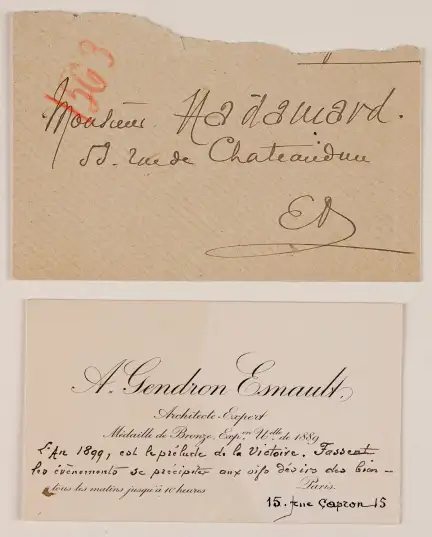 1563
Monsieur Hadamard.
53. rue de Chateaudun
EV
A. Gendron Esnault.
Architecte-Expert
Médaille de Bronze, Exp.on U.elle de 1889
L'An 1899, est le prélude de la Victoire. Fassent
les évènements se précipiter aux vifs désirs des bien-
tous les matins jusqu'à 10 heures
Paris.
15. rue Capron 15